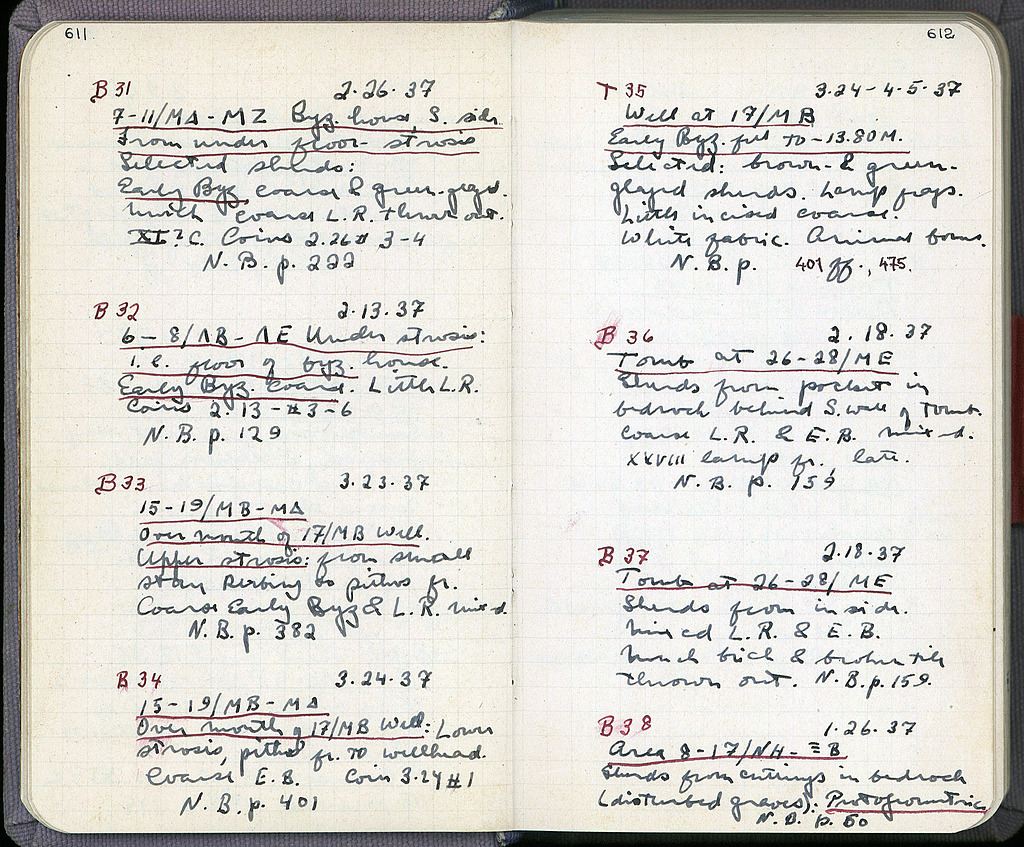 611
B 31 2.26.37
7-11/ΜΔ-ΜΖ Byz. house, S. side
From under floor-strosis
Selected sherds:
Early Byz. coarse & green-glazed.
Much coarse L.R. thrown out.
XI? C. Coins 2.26 # 3-4
N.B. p. 222
B 32 2.13.37
6-8/ΛΒ-ΛΕ Under strosis:
i.e. floor of byz. house.
Early Byz. Coarse. Little L.R.
Coins 2.13-#3-6
N.B. p. 129
B 33 3.23.37
15-19/ΜΒ-ΜΔ
Over mouth of 17/ΜΒ Well.
Upper strosis: from small
stony to pithos fr.
Coarse Early Byz & L.R. mixed.
N.B. p. 382
B 34 3.24.37
15-19/ΜΒ-ΜΔ
Over mouth of 17/ΜΒ Well: Lower
strosis, pithos fr. to wellhead.
Coarse E.B. Coin 3.24 #1
N.B. p. 401
612
T 35 3.24-4.5.37
Well at 17/ΜΒ
Early Byz. fill to -13.80 M.
Selected: brown- & green-
glazed sherds. Lamp frags.
Little incised coarse.
White fabric. Animal bones.
N.B. p. 401 ff., 475.
B 36 2.18.37
Tomb at 26-28/ΜΕ
Sherds from pocket in
bedrock behind S. wall of Tomb.
Coarse L.R. & E.B. mixed.
XXVIII lamp fr., late.
N.B. p. 159
B 37 2.18.37
Tomb at 26-28/ΜΕ
Sherds from inside.
Mixed L.R. & E.B.
Much brick & broken tile
thrown out. N.B. p. 159.
B 38 1.26.37
Area 8-17/ΝΗ-ΞΒ
Sherds from cuttings in bedrock
(disturbed graves): Protogeometric
N.B. p. 60